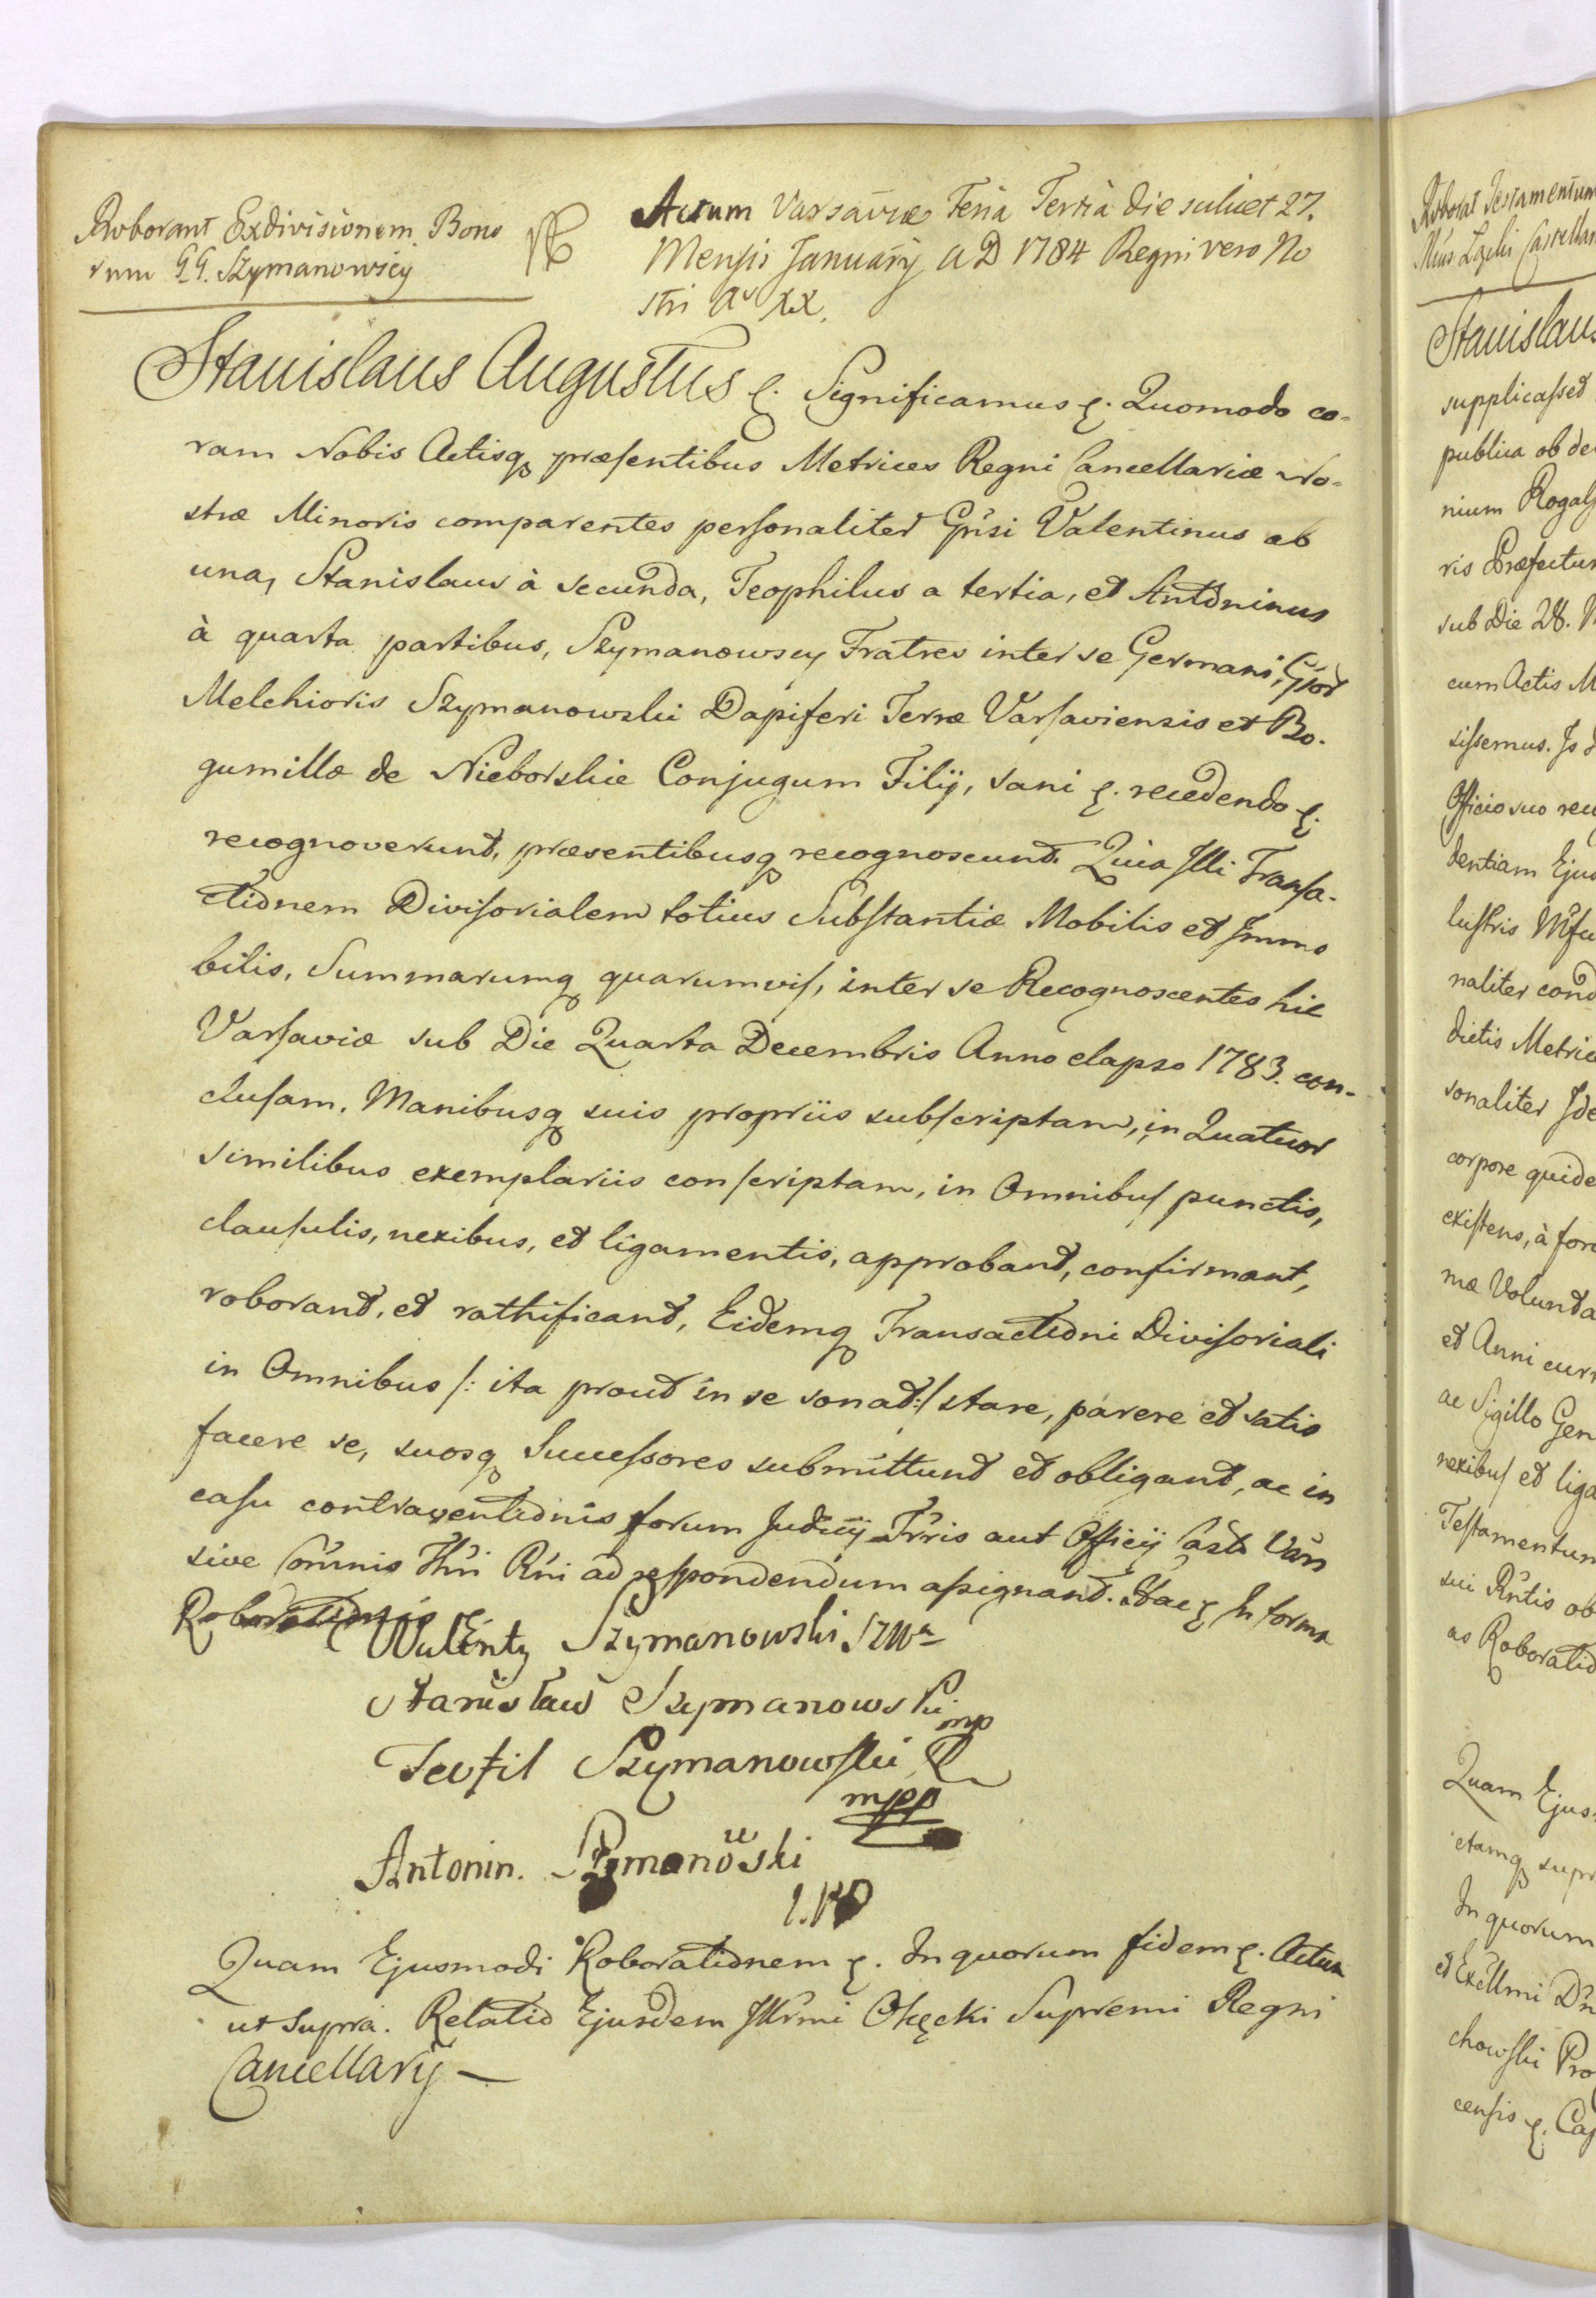 Roborant Exdivisionem Bono
rum G.G. Szymanowscy
Actum Varsaviæ Feria Tertia die scilicet 27.
Mensis January A D 1784 Regni vero No
stri A° XX.
Stanislaus Augustus &. Significamus &. Quomodo co-
ram Nobis Actisq præsentibus Metrices Regni Cancellariæ No-
stræ Minoris comparentes personaliter Gnsi Valentinus ab
una, Stanislaus à secunda, Teophilus a tertia, et Antoninus
à quarta partibus, Szymanowscy Fratres inter se Germani, Gsor
Melchioris Szymanowski Dapiferi Terræ Varsaviensis et Bo-
gumillæ de Nieborskie Conjugum Filij, sani &. recedendo &.
recognoverunt, præsentibusq recognoscunt. Quia Illi Transa-
ctionem Divisorialem totius Substantiæ Mobilis et Immo
bilis, Summarumq quarumvis, inter se Recognoscentes hic
Varsaviæ sub Die Quarta Decembris Anno elapso 1783. con-
clusam. Manibusq suis propriis subscriptam, in Quatuor
similibus exemplariis conscriptam, in Omnibus punctis,
clausulis, nexibus, et ligamentis, approbant, confirmant,
roborant, et rathificant, Eidemq Transactioni Divisoriali
in Omnibus /: ita prout in se sonat :/ stare, parere et satis
facere se, suosq Successores submittunt et obligant, ac in
casu contraventionis forum Judicij Trris aut Officij Cast Van
sive Comnis Thri Rni ad respondendum assignant. Hac & In forma
Roborationis &
Walenty Szymanowski SzW
Stanisław Szymanowski
mp
Teofil Szymanowski
mpp
Antonin. Szymanowski
Quam Ejusmodi Roborationem &. In quorum fidem &. Actum
ut supra. Relatio Ejusdem Illrmi Okęcki Supremi Regni
Cancellarij —
Roborat Testamentum
Stanislaus
supplicasset
publica ob de
nium
ris Præfectur
sub Die 28.
cum Actis M
sissemus. Is
Officio suo rec
dentiam Ejus
lustris
naliter cond
dictis Metric
sonaliter Ide
corpore quide
existens, à for
mæ Volunta
et Anni curr
ac Sigillo Gen
nexibus et liga
Testamentum
sui Rntis ob
as Roboratio
Quam Ejus
ctamq supr
In quorum
et Excllmi Dn
chowski Pro
censis &. Cap